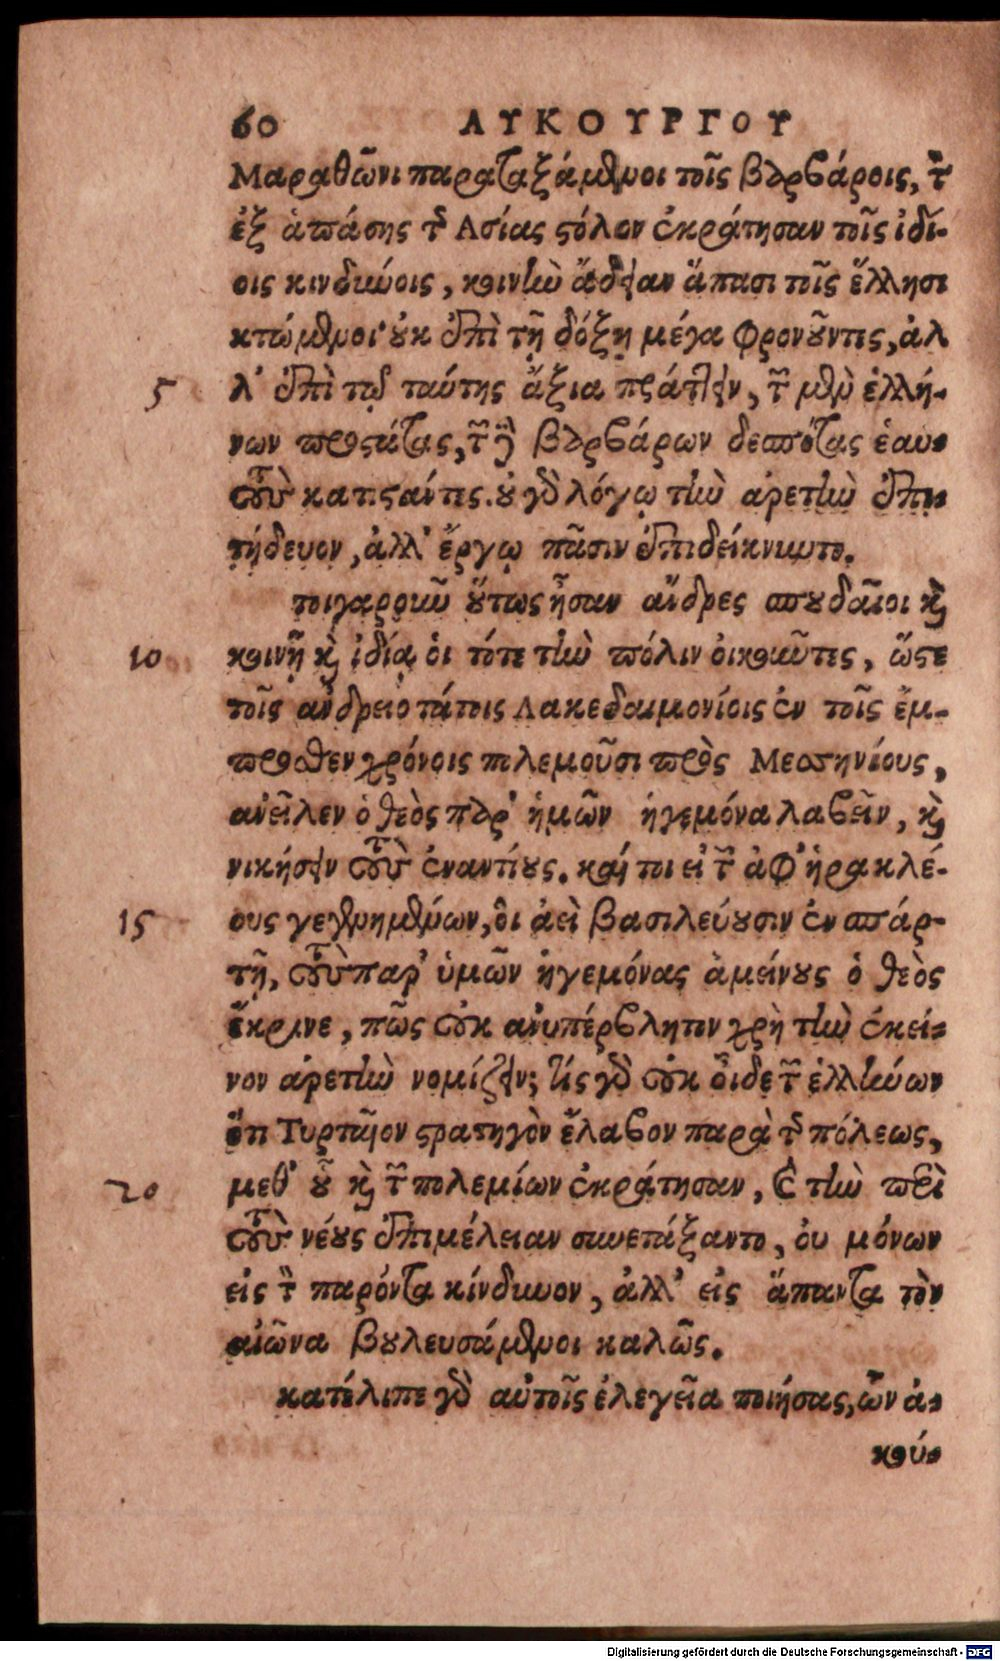 60 ΛΥΚΟΥΡΓΟΥ
Μαραθῶνι παραταξάμενοι τοῖς βαρβάροις, τὸν
ἐξ ἁπάσης τῆς Ἀσίας στόλον ἐκράτησαν τοῖς ἰδί-
οις κινδύνοις, κοινὴν ἄδειαν ἅπασι τοῖς ἕλλησι
κτώμενοι· οὐκ ἐπὶ τῇ δόξῃ μέγα φρονοῦντες, ἀλ
5 λ' ἐπὶ τῷ ταύτης ἄξια πράττειν, τῶν μὲν ἑλλή-
νων προστάτας, τῶν δὲ βαρβάρων δεσπότας ἑαυ-
τοὺς καταστάντες. οὐ γὰρ λόγῳ τὴν ἀρετὴν ἐπι-
τήδευον, ἀλλ' ἔργῳ πᾶσιν ἐπιδείκνυντο.
τοιγαροῦν οὕτως ἦσαν ἄνδρες σπουδαῖοι καὶ
10 κοινῇ καὶ ἰδίᾳ οἱ τότε τὴν πόλιν οἰκοῦντες, ὥστε
τοῖς ἀνδρειοτάτοις Λακεδαιμονίοις ἐν τοῖς ἔμ-
προσθεν χρόνοις πολεμοῦσι πρὸς Μεσσηνίους,
ἀνεῖλεν ὁ θεὸς παρ' ἡμῶν ἡγεμόνα λαβεῖν, καὶ
νικήσειν τοὺς ἐναντίους. καί τοι εἰ τῶν ἀφ' ἡρακλέ-
15 ους γεγενημένων, οἳ ἀεὶ βασιλεύουσιν ἐν σπάρ-
τῃ, τοὺς παρ' ὑμῶν ἡγεμόνας ἀμείνους ὁ θεὸς
ἔκρινε, πῶς οὐκ ἀνυπέρβλητον χρὴ τὴν ἐκεί-
νον ἀρετὴν νομίζειν; τίς γὰρ οὐκ οἶδε τῶν ἑλλήνων
ὅτι Τυρταῖον στρατηγὸν ἔλαβον παρὰ τῆς πόλεως,
20 μεθ' οὗ καὶ τῶν πολεμίων ἐκράτησαν, καὶ τὴν περὶ
τοὺς νέους ἐπιμέλειαν συνετάξαντο, οὐ μόνων
εἰς τὸν παρόντα κίνδυνον, ἀλλ' εἰς ἅπαντα τὸν
αἰῶνα βουλευσάμενοι καλῶς.
κατέλιπε γὰρ αὐτοῖς ἐλεγεῖα ποιήσας, ὧν ἀ-
κού-
Digitalisierung gefördert durch die Deutsche Forschungsgemeinschaft - DFG